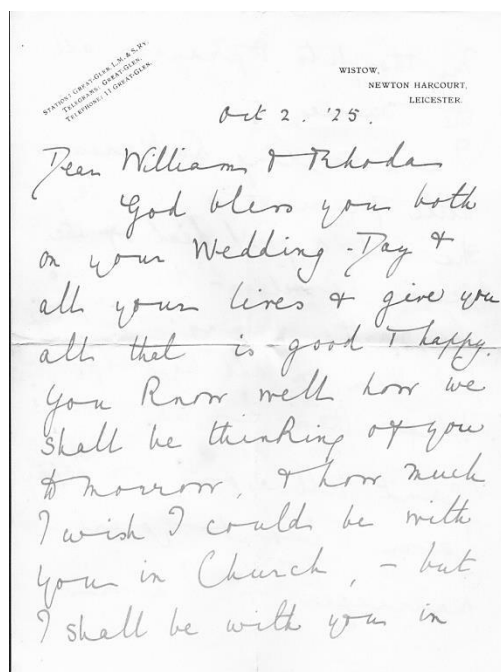 STATION: GREAT-GLEN, L.M. & S. RY.
TELEGRAMS: GREAT-GLEN.
TELEPHONE: 11 GREAT-GLEN.
WISTOW,
NEWTON HARCOURT,
LEICESTER.
Oct 2. '25.
Dear William & Rhoda
God bless you both
on your Wedding-Day &
all your lives & give you
all that is good & happy.
You know well how we
shall be thinking of you
tomorrow, & how much
I wish I could be with
you in Church, - but
I shall be with you in